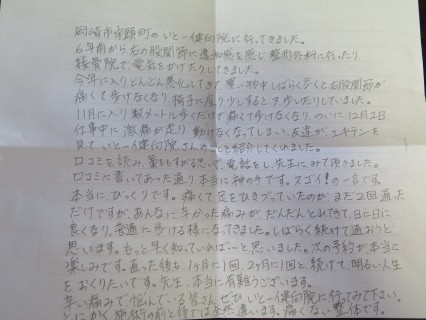 岡崎市室頭町のいとー健向院に行ってきました。
6年前から右の股関節に違和感を感じ整形外科に行ったり
接骨院で電気をかけたりしてきました。
今年に入りどんどん悪化してきて買い物中しばらく歩くと右股関節が
痛くて歩けなくなり、椅子に座り少しすると又歩いたりしていました。
11月に入り数メートル歩くだけで痛くて歩けなくなり、ついに12月2日
仕事中に激痛が走り動けなくなってしまい、友達がエキテンを
見ていとー健向院さんの事を紹介してくれました。
口コミを読み、藁をもすがる思いで電話をし、先生にみて頂きました。
口コミに書いてあった通り本当に神の手です。スゴイ!の一言です。
本当に、びっくりです。痛くて足をひきづっていたのがまだ2回通った
だけですが、あんなに辛かった痛みがだんだんとれてきて、日に日に
良くなり、普通に歩ける様になってきました。しばらく続けて通おうと
思います。もっと早く知っていれば…と思いました。次の予約が本当に
楽しみです。直った後も、1ヶ月に1回、2ヶ月に1回と続けて、明るい人生
をおくりたいです。先生、本当に有難うございます。
辛い痛みで悩んでいる皆さんぜひいとー健向院に行ってみて下さい。
とにかく施術の前と後では全然違います。痛くない整体です。